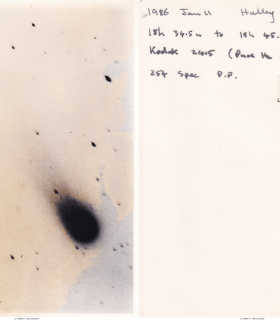 1986 Jan 11 Halley
18h 34.5m to 18h 45.
Kodak 2415 (Pure H
257 Spec P.F.